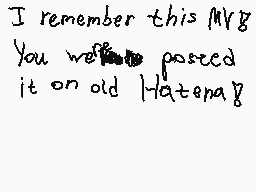 I remember this MV!!
You were posted
it on old Hatena!!